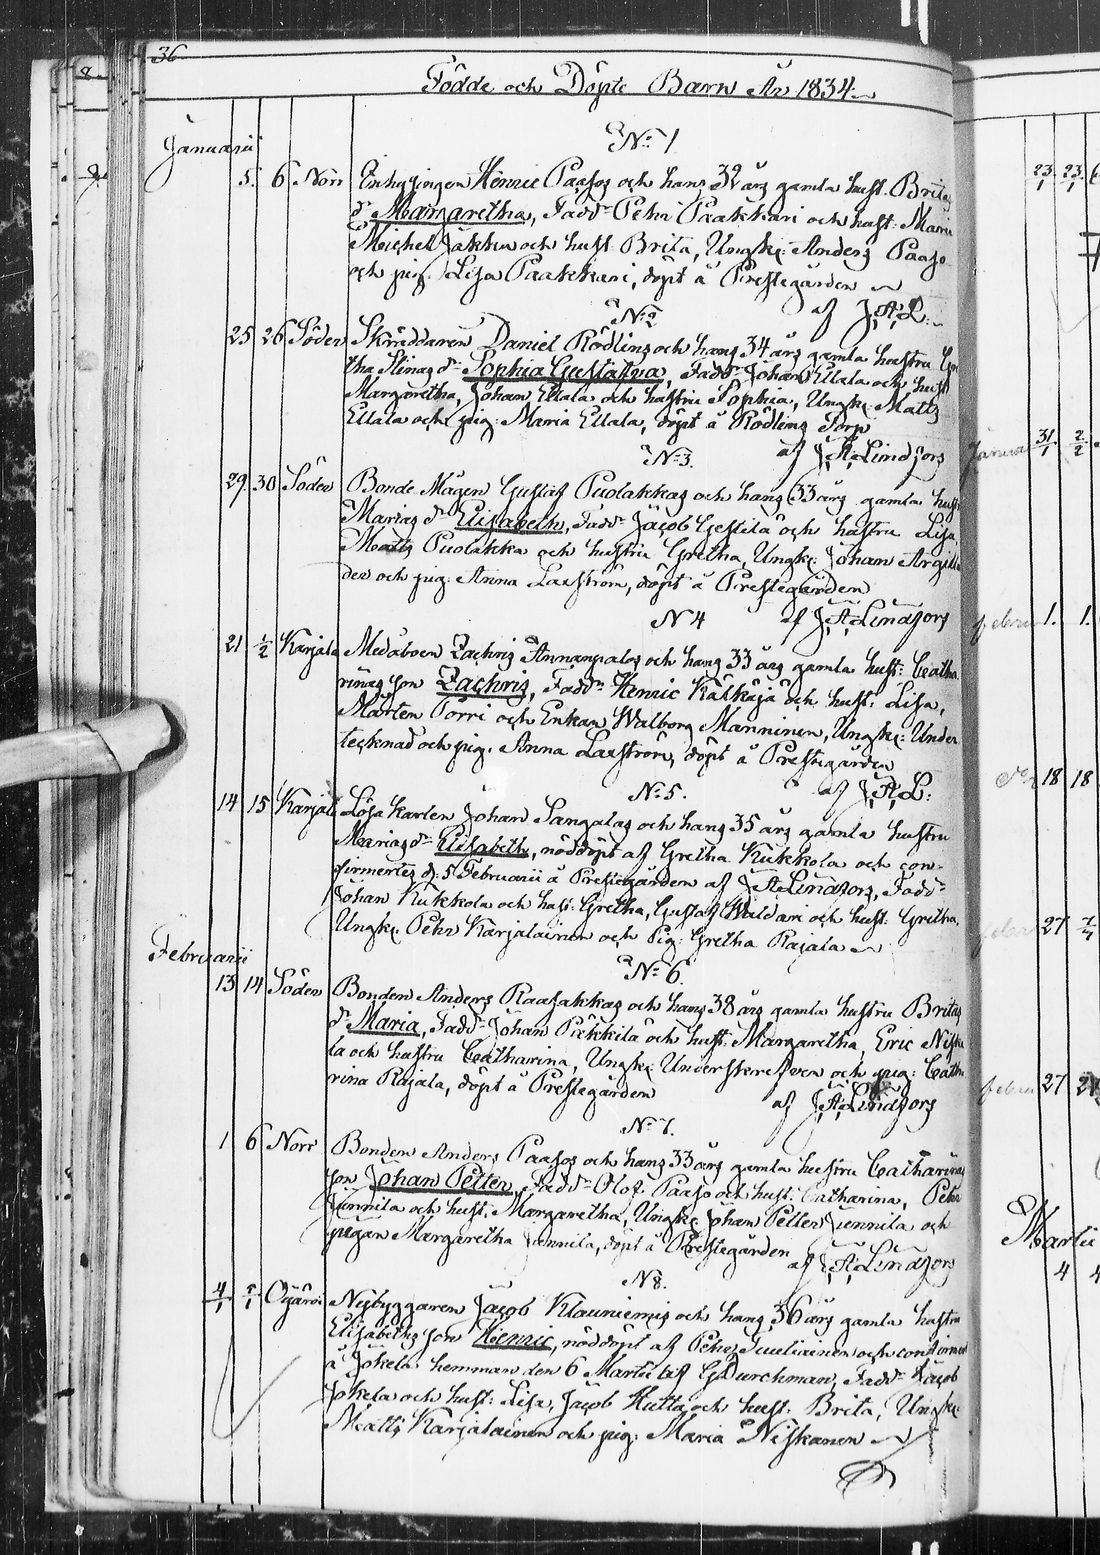 36
Födde och Döpte Barn År 1834
Januarii
N:o 1
5. 6 Norr Inhysingen Henric Paasos och hans 32 års gamla hust. Britas
dr Margaretha, Fadd: Pehr Paakkari och hust: Maria
Michel Jakku och hust: Brita, Ungk: Anders Paaso
och pig: Lisa Paakkari, döpt å Prestegården
af J.A.L.
N:o 2
25 26 Söder Skräddaren Daniel Rödlins och hans 34 års gamla hustru Gre
tha Stinas dr Sophia Gustafva, Fadd: Johan Ellala och hust
Margaretha, Johan Ellala och hustru Sophia, Ungk: Matts
Ellala och pig: Maria Ellala, döpt å Rödlins Torp
af J.A. Lindfors
N:o 3.
29. 30 Söder Bonde Mågen Gustaf Puolakkas och hans 33 års gamla hust
Marias dr Elisabeth, Fadd: Jacob och hustru Lisa,
Matts Puolakka och hustru Gretha, Ungk: Johan
der och pig: Anna Laxström, döpt å Prestegården
af J.A. Lindfors
N 4
21 1/2 Karjala Medåboen Zachris Annanpalos och hans 33 års gamla hust: Catha
rinas son Zachris, Fadd: Henric Kälkäjä och hust: Lisa,
Mårten Torri och Enkan Walborg Manninen, Ungk: Under
tecknad och pig. Anna Laxström, döpt å Prestegården
af J.A.L:
N:o 5.
14 15 Karjala Lösa karlen Johan Sangalas och hans 35 års gamla hustru
Marias dr Elisabeth, nöddöpt af Gretha Kukkola och con-
firmertes d: 5 Februarii å Prestegården af J.A. Lindfors, Fadd:
Johan Kukkola och hust: Gretha, Gustaf Waldari och hust: Gretha,
Ungk: Pehr Karjalainen och Pig: Gretha Rajala
Februarii
N:o 6.
13 14 Söder Bonden Anders Raasakkas och hans 38 års gamla hustru Britas
dr Maria, Fadd: Johan Päkkilä och hust: Margaretha, Eric Niska
la och hustru Catharina, Ungk: Underskrefven och pig: Catha
rina Rajala, döpt å Prestegården
af J.A. Lindfors
N:o 7.
1 6 Norr Bonden Anders Paasos och hans 33 års gamla hustru Catharinas
son Johan Petter, Fadd: Olof Paaso och hust: Catharina, Pehr
Junnila och hust: Margaretha, Ungk: Johan Petter Junnila och
pigan Margaretha Junnila, döpt å Prestegården
af J.A. Lindfors
N 8.
4/1 5/1 Nybyggaren Jacob Klauniemis och hans 36 års gamla hustru
Elisabeths son Henric, nöddöpt af Pehr Juuliainen och confirmert
å Jokela hemman den 6 Martii af G Durchman, Fadd: Jacob
Jokela och hust: Lisa, Jacob Hutta och hust: Brita, Ungk:
Matts Karjalainen och pig: Maria Niskanen
23/1 23/1
Januarii 31/1 2/2
februarii 1. 1.
18 18
27
27
Martii
4